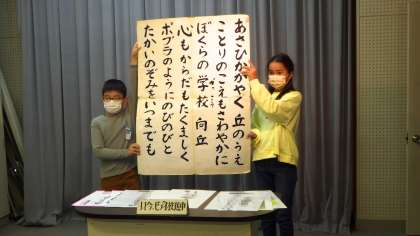 あさひかがやく 丘のうえ
ことりのこえもさわやかに
ぼくらの学校 向丘
心もからだもたくましく
ポプラのようにのびのびと
たかいのぞみをいつまでも